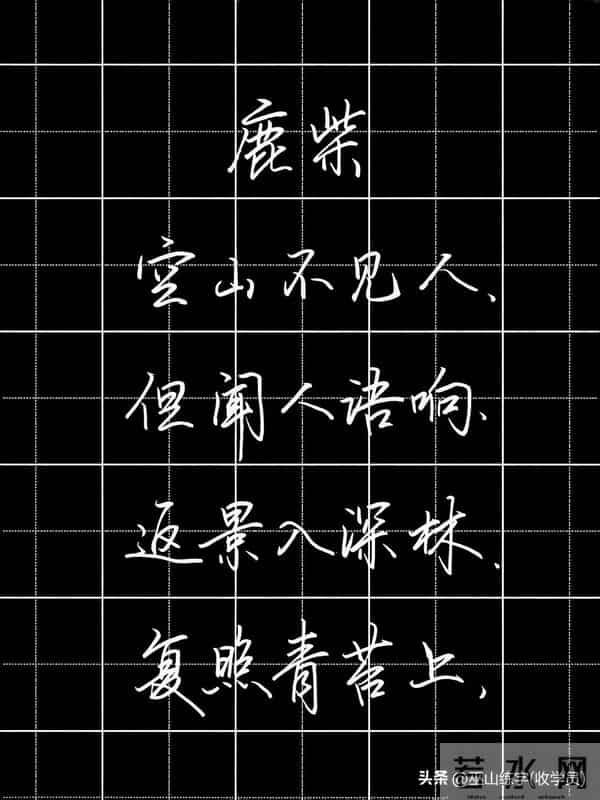 鹿柴
空山不见人、
但闻人语响、
返景入深林、
复照青苔上，
若水网
头条 @巫山练字(收学员)